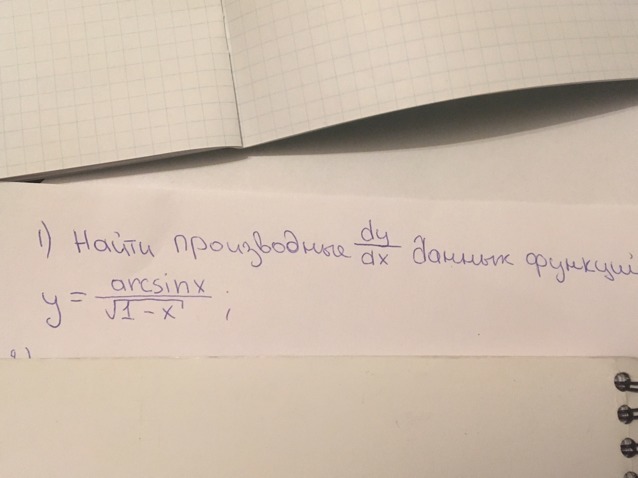 1) Найти производные dy/dx данных функций
y = arcsinx/√1-x ;